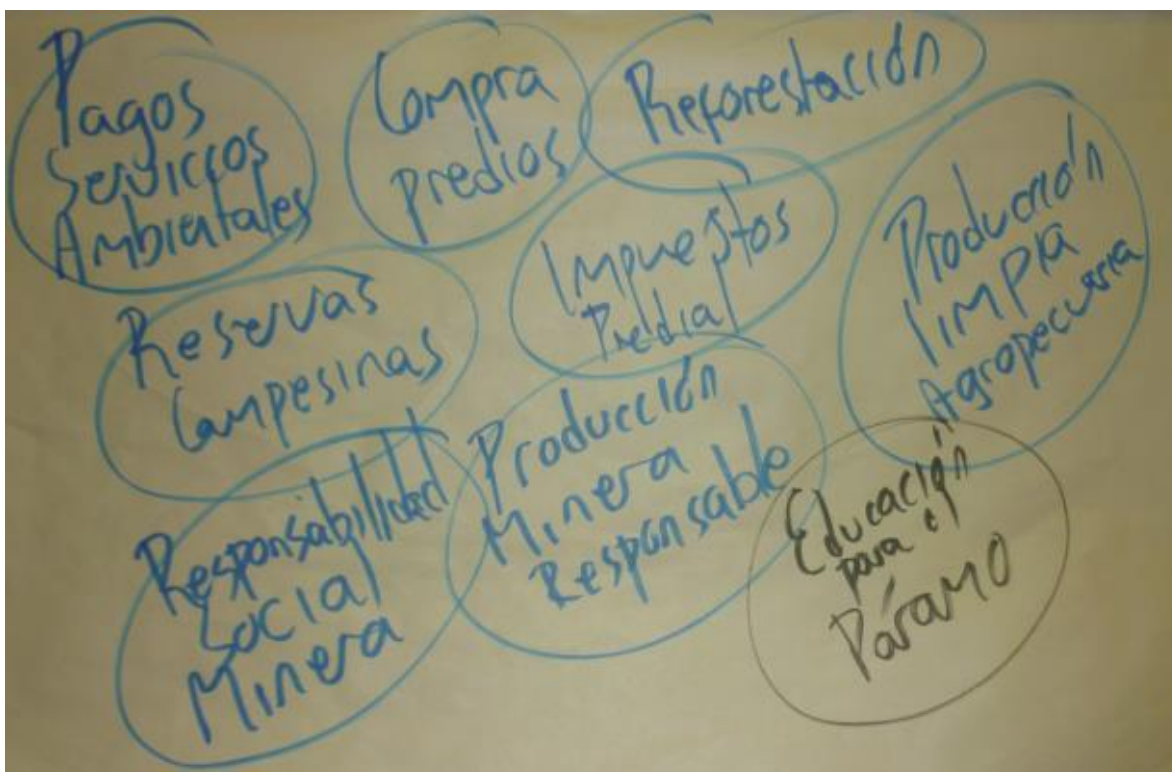 Pagos
Servicios
Ambientales
Compra
predios
Reforestación
Reservas
Campesinas
Impuestos
Predial
Producción
limpia
Agropecuaria
Responsabilidad
Social
Minera
Producción
Minera
Responsable
Educación
para el
Páramo